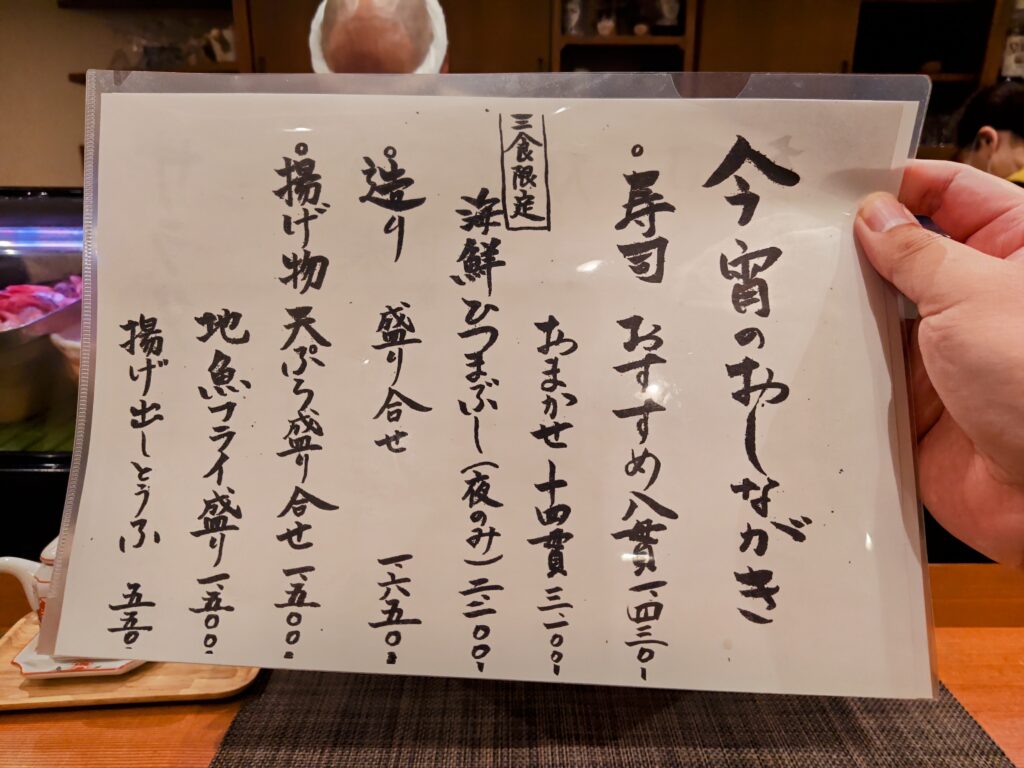 今宵のおしながき
。寿司 おすすめ八貫 一、四三〇
おまかせ 十四貫 三、一〇〇
三食限定
海鮮ひつまぶし(夜のみ) 二、二〇〇
。造り 盛り合せ 一、六五〇
。揚げ物 天ぷら盛り合せ 一、五〇〇
地魚フライ盛り 一、五〇〇
揚げ出しとうふ 五五〇